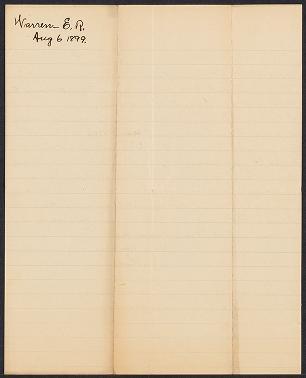 Warren E. R.
Aug 6 1899.